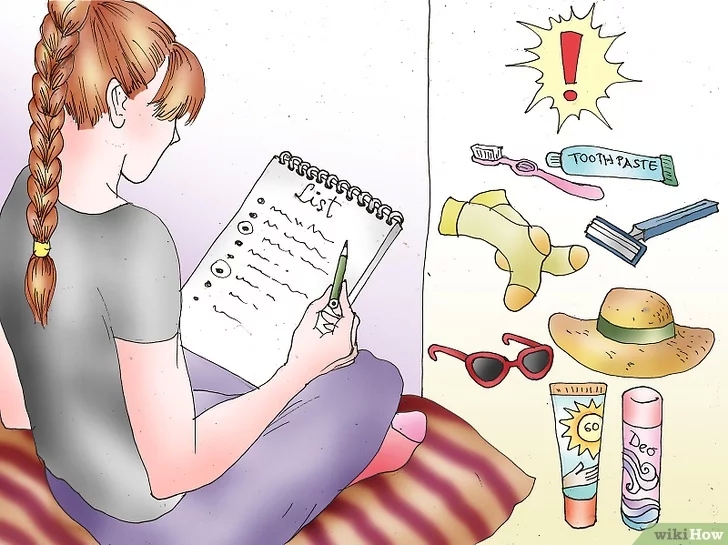 list
TOOTHPASTE
60
Deo
wikiHow